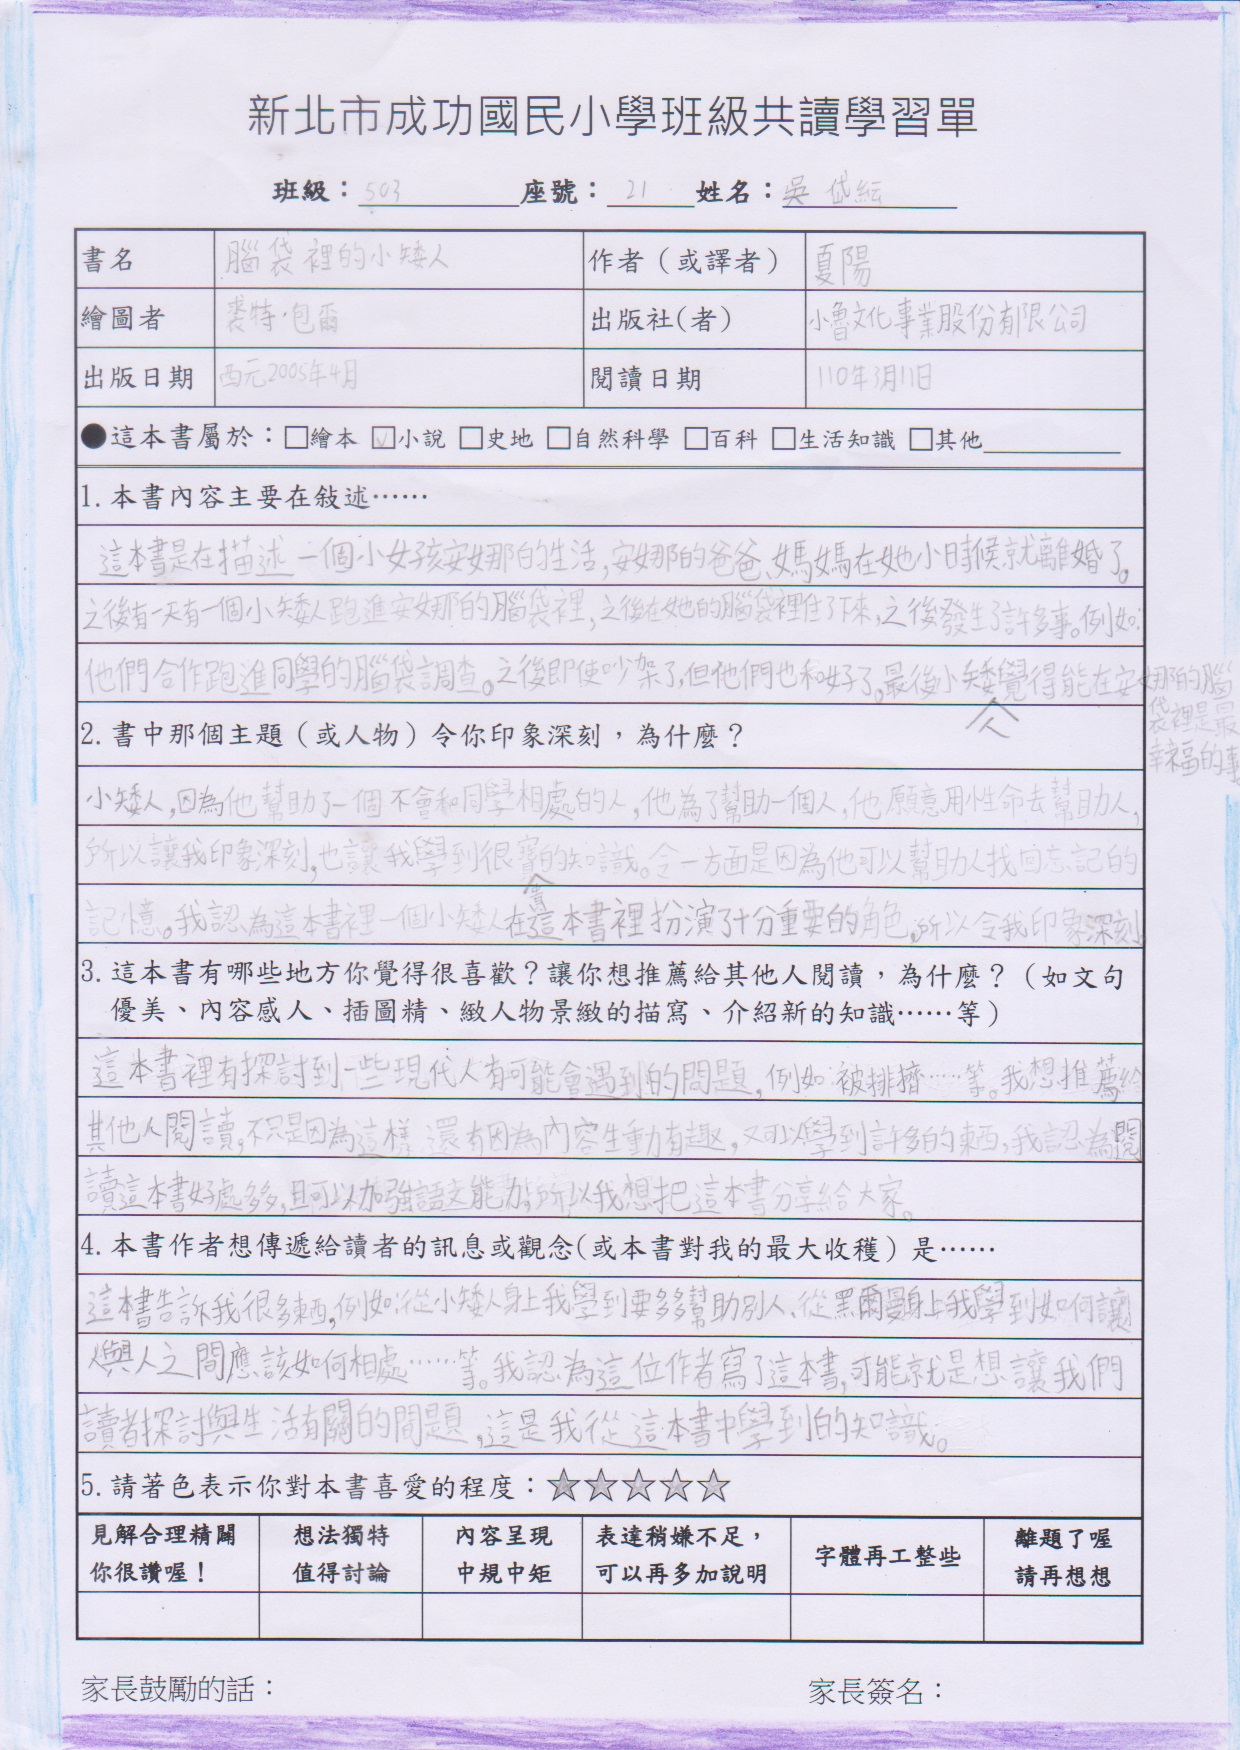 新北市成功國民小學班級共讀學習單
班級：503 座號：21 姓名：吳岱紜
書名 腦袋裡的小矮人 作者（或譯者） 夏陽
繪圖者 裘特·包爾 出版社(者) 小魯文化事業股份有限公司
出版日期 西元2005年4月 閱讀日期 110年3月11日
●這本書屬於：□繪本 ☑小說 □史地 □自然科學 □百科 □生活知識 □其他
1. 本書內容主要在敍述……
這本書是在描述一個小女孩安娜的生活，安娜的爸爸、媽媽在她小時候就離婚了。
之後有一天有一個小矮人跑進安娜的腦袋裡，之後在她的腦袋裡住了下來，之後發生了許多事。例如：
他們合作跑進同學的腦袋調查。之後即使吵架了，但他們也和好了。最後小矮人覺得能在安娜的腦
袋裡是最
幸福的事
2. 書中那個主題（或人物）令你印象深刻，為什麼？
小矮人，因為他幫助了一個不會和同學相處的人，他為了幫助一個人，他願意用性命去幫助人，
所以讓我印象深刻，也讓我學到很寶貴的知識。令一方面是因為他可以幫助人找回忘記的
記憶。我認為這本書裡一個小矮人在這本書裡扮演了十分重要的角色，所以令我印象深刻
3. 這本書有哪些地方你覺得很喜歡？讓你想推薦給其他人閱讀，為什麼？（如文句
優美、內容感人、插圖精、緻人物景緻的描寫、介紹新的知識……等）
這本書裡有探討到一些現代人有可能會遇到的問題，例如：被排擠……等。我想推薦給
其他人閱讀，不只是因為這樣，還有因為內容生動有趣，又可以學到許多的東西，我認為閱
讀這本書好處多多，且可以加強語文能力，所以我想把這本書分享給大家。
4. 本書作者想傳遞給讀者的訊息或觀念(或本書對我的最大收穫）是……
這本書告訴我很多東西，例如：從小矮人身上我學到要多多幫助別人、從黑爾曼身上我學到如何讓
人與人之間應該如何相處……等。我認為這位作者寫了這本書，可能就是想讓我們
讀者探討與生活有關的問題，這是我從這本書中學到的知識。
5. 請著色表示你對本書喜愛的程度：★★★★★
見解合理精闢 你很讚喔！ 想法獨特 值得討論 內容呈現 中規中矩 表達稍嫌不足， 可以再多加說明 字體再工整些 離題了喔 請再想想
家長鼓勵的話： 家長簽名：